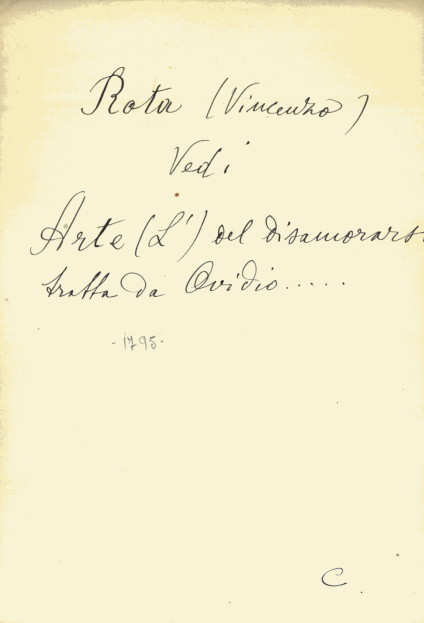 Rota (Vincenzo)
Vedi
Arte (L') del disamorarsi
tratta da Ovidio.....
-1795-
C